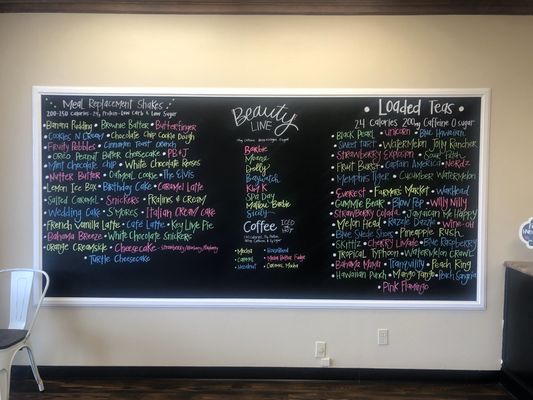 Meal Replacement Shakes
200-250 Calories - 24g Protein - Low Carb & Low Sugar
Banana Pudding • Brownie Batter • Butterfinger
Cookies N Cream • Chocolate Chip Cookie Dough
Fruity Pebbles • Cinnamon Toast Crunch
Oreo • Peanut Butter Cheesecake • PB & J
Mint Chocolate Chip • White Chocolate Reeses
Nutter Butter • Oatmeal Cookie • The Elvis
Lemon Ice Box • Birthday Cake • Caramel Latte
Salted Caramel • Snickers • Pralines & Cream
Wedding Cake • S'mores • Italian Cream Cake
French Vanilla • Cafe Latte • Key Lime Pie
Bahama Breeze • White Chocolate Snickers
Orange Creamsicle • Cheesecake -Strawberry/Blueberry/Raspberry
Turtle Cheesecake
Beauty
LIVE
Barbie
Mermaid
Dolly
Baywatch
Spa Day
Malibu Barbie
Sicily
Coffee ICED
HOT
• Mocha
• Caramel
• Hazelnut
• House Blend
• Mocha Butter Fudge
• Caramel Mocha
Loaded Teas
24 Calories 200mg Caffeine 0 Sugar
Black Pearl • Unicorn • Blue Hawaiian
Sweet Tart • Watermelon Jolly Rancher
Strawberry Explosion • Sour Patch
Fruit Burst • Captain America • Nerdz
Memphis Tiger • Cucumber Watermelon
Everest • Farmers Market • Warhead
Gummie Bear • Blow Pop • Willy Nilly
Strawberry Colada • Jamaican Me Happy
Melon Head • Razzle Dazzle • Wine-oh
Blue Suede Shoes • Pineapple Rush
Skittlz • Cherry Limeade • Blue Raspberry
Tropical Typhoon • Watermelon Crawl
Bahama Mama • Tranquility • Peach Ring
Hawaiian Punch • Mango Tango • Peach Sangria
• Pink Flamingo